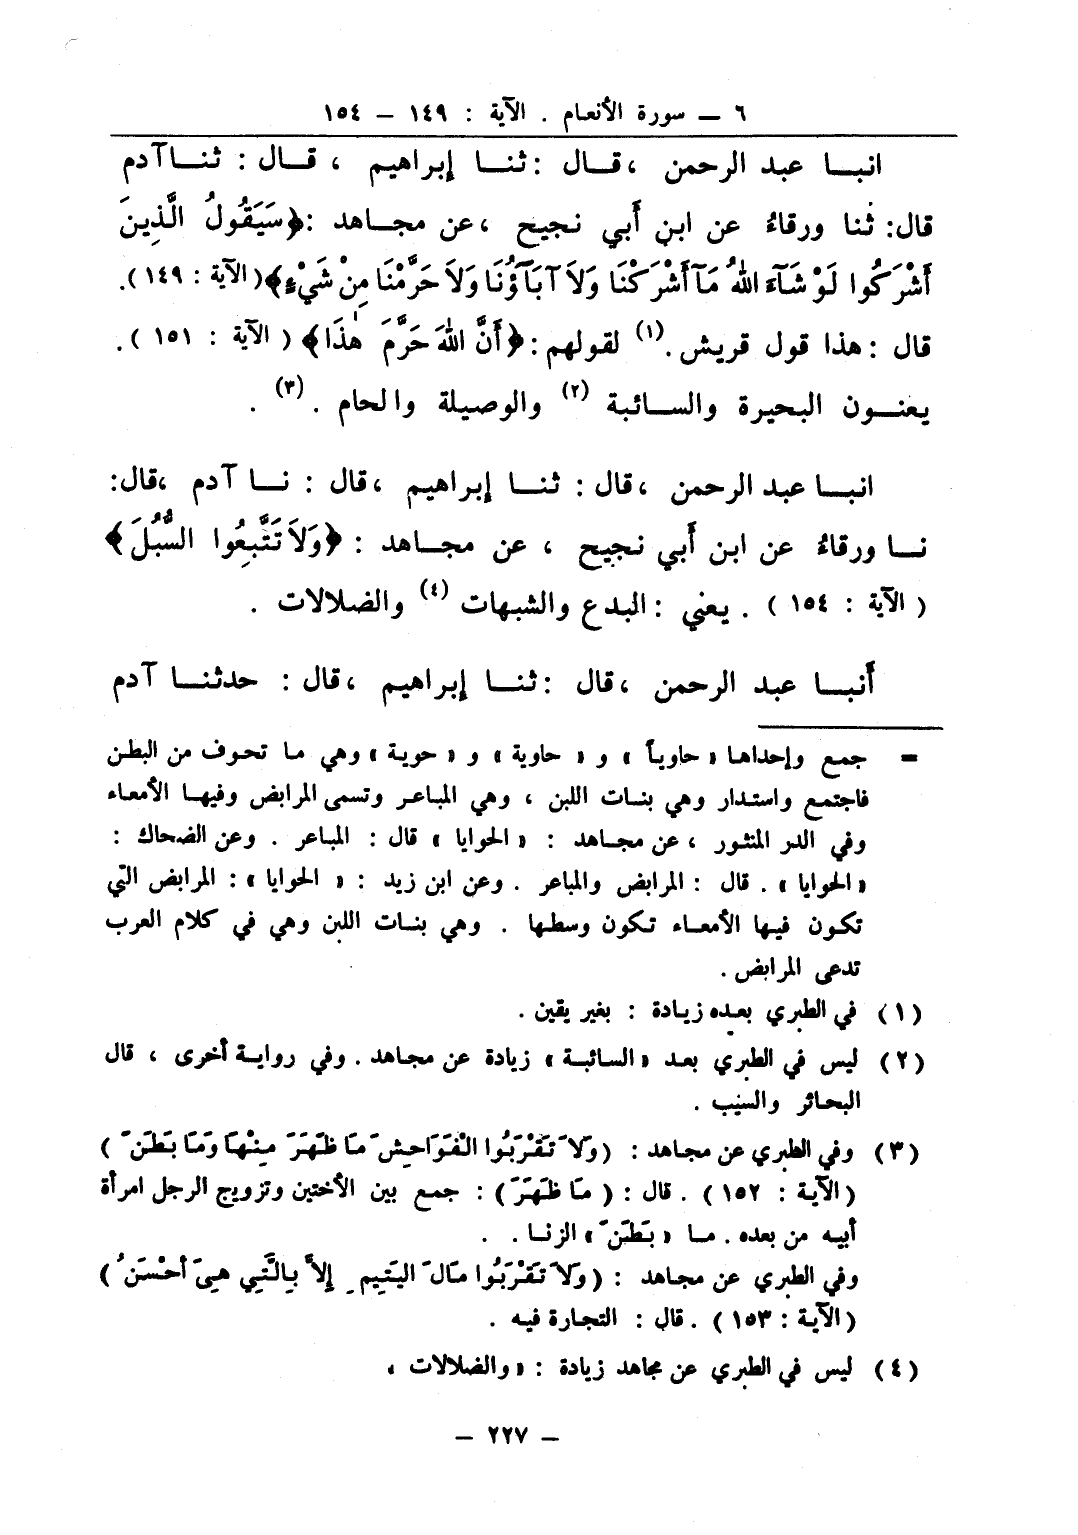 ٦ — سورة الأنعام . الآية : ١٤٩ — ١٥٤
انبا عبد الرحمن ، قال : ثنا إبراهيم ، قال : ثنا آدم
قال : ثنا ورقاءُ عن ابن أَبي نجيح ، عن مجاهد : ﴿سَيَقُولُ الَّذِينَ
أَشْرَكُوا لَوْ شَآءَ اللهُ مَآ أَشْرَكْنَا وَلاَ آبَآؤُنَا وَلاَ حَرَّمْنَا مِنْ شَيْءٍ﴾ ( الآية : ١٤٩ ) .
قال : هذا قول قريش . (١) لقولهم : ﴿أَنَّ اللهَ حَرَّمَ هٰذَا﴾ ( الآية : ١٥١ ) .
يعنون البحيرة والسائبة (٢) والوصيلة والحام . (٣) .
انبا عبد الرحمن ، قال : ثنا إبراهيم ، قال : نا آدم ، قال :
نا ورقاءُ عن ابن أَبي نجيح ، عن مجاهد : ﴿وَلاَ تَتَّبِعُوا السُّبُلَ﴾
( الآية : ١٥٤ ) . يعني : البدع والشبهات (٤) والضلالات .
أَنبا عبد الرحمن ، قال : ثنا إبراهيم ، قال : حدثنا آدم
= جمع وإحداها « حاوياً » و « حاوية » و « حوية » وهي ما تحوف من البطن
فاجتمع واستدار وهي بنات اللبن ، وهي المباعر وتسمى المرابض وفيها الأمعاء
وفي الدر المنثور ، عن مجاهد : « الحوايا » قال : المباعر . وعن الضحاك :
« الحوايا » . قال : المرابض والمباعر . وعن ابن زيد : « الحوايا » : المرابض التي
تكون فيها الأمعاء تكون وسطها . وهي بنات اللبن وهي في كلام العرب
تدعى المرابض .
(١) في الطبري بعده زيادة : بغير يقين .
(٢) ليس في الطبري بعد « السائبة » زيادة عن مجاهد . وفي رواية أخرى ، قال
البحائر والسيّب .
(٣) وفي الطبري عن مجاهد : ( وَلاَ تَقْرَبُوا الْفَوَاحِشَ مَا ظَهَرَ مِنْهَا وَمَا بَطَنَ )
( الآية : ١٥٢ ) . قال : ( مَا ظَهَرَ ) : جمع بين الأختين وتزويج الرجل امرأة
أبيه من بعده . ما « بَطَنَ » الزنا . .
وفي الطبري عن مجاهد : ( وَلاَ تَقْرَبُوا مَالَ الْيَتِيمِ إِلاَّ بِالَّتِي هِيَ أَحْسَنُ )
( الآية : ١٥٣ ) . قال : التجارة فيه .
(٤) ليس في الطبري عن مجاهد زيادة : « والضلالات »
— ٢٢٧ —